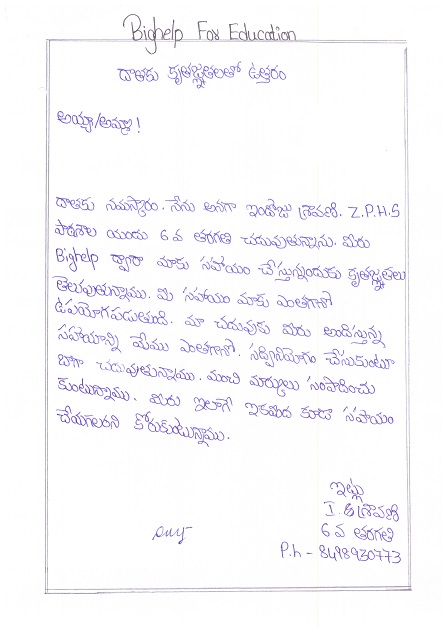 Bighelp For Education
దాతకు కృతజ్ఞతలతో ఉత్తరం
అయ్యా/అమ్మా!
దాతకు నమస్కారం. నేను అనగా ఇందోజు శ్రావణి. Z.P.H.S
పాఠశాల యందు 6 వ తరగతి చదువుతున్నాను. మీరు
Bighelp ద్వారా మాకు సహాయం చేస్తున్నందుకు కృతజ్ఞతలు
తెలుపుతున్నాము. మీ సహాయం మాకు ఎంతగానో
ఉపయోగపడుతుంది. మా చదువుకు మీరు అందిస్తున్న
సహాయాన్ని మేము ఎంతగానో. సద్వినియోగం చేసుకుంటూ
బాగా చదువుతున్నాము. మంచి మార్కులు సంపాదించు
కుంటున్నాము. మీరు ఇలాగే ఇకమీద కూడా సహాయం
చేయగలరని కోరుకుంటున్నాము.
ఇట్లు
I. శ్రావణి
6 వ తరగతి
P.h - 8498930773